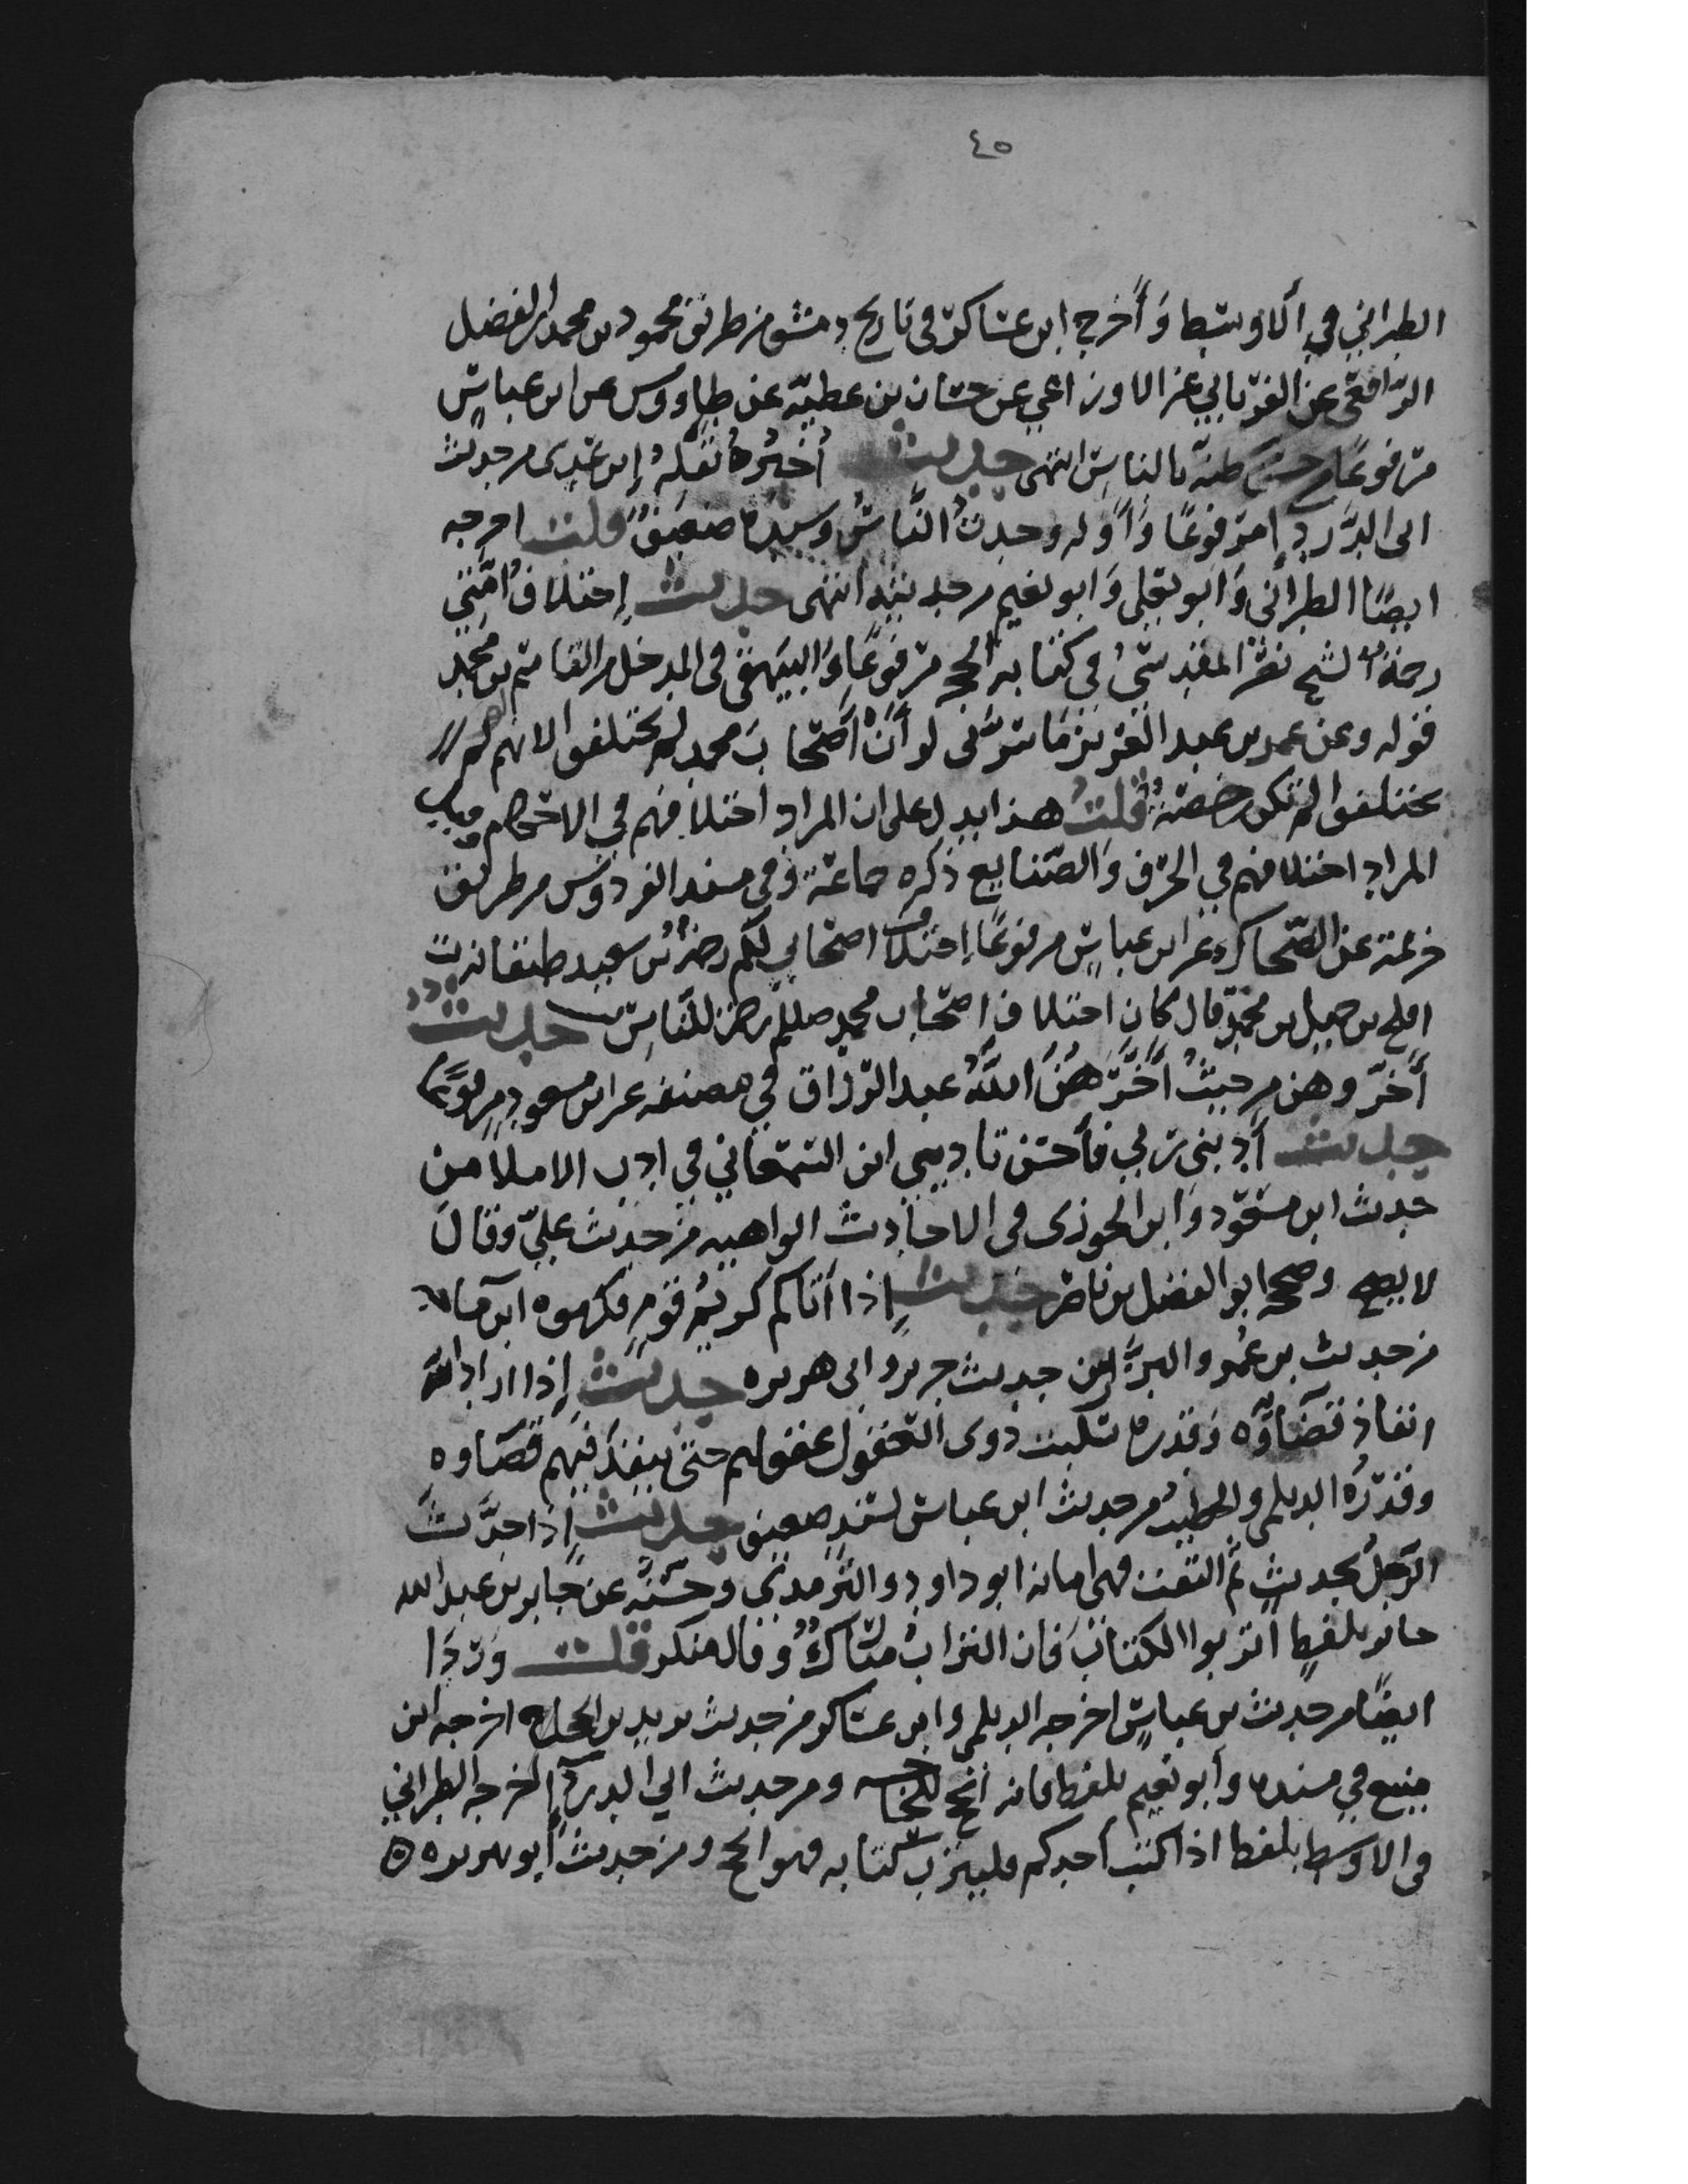 ٤٥
الطبراني في الاوسط وأخرج ابن عساكر في تاريخ دمشق من طريق محمود بن محمد بن الفضل
الرافقي عن الفريابي عن الاوزاعي عن حسان بن عطية عن طاووس عن ابن عباس
مرفوعا من حسن ظنه بالناس انتهى حديث أخبر تقله ابن عدى من حديث
ابى الدرداء مرفوعا وأوله وجدت الناس وسنده ضعيف قلت اخرجه
ايضا الطبرانى وابو يعلى وابو نعيم من حديثه انتهى حديث إختلاف أمتي
رحمة الشيخ نصر المقدسي في كتابه الحجة مرفوعا والبيهقى فى المدخل من القاسم بن محمد
قوله وعن عمر بن عبد العزيز ما سرنى لو أن أصحاب محمد لم يختلفوا لانهم لو لم
يختلفوا لم تكن رخصة قلت هذا يدل على ان المراد اختلافهم في الاحكام وقيل
المراد اختلافهم في الحرف والصنايع ذكره جماعة وفي مسند الفردوس من طريق
عن الضحاك عن ابن عباس مرفوعا إختلاف اصحابي لكم رحمة بن سعيد طبقات
افلح بن حميد بن محمد قال كان اختلاف اصحاب محمد صللم رحمة للناس حديث
أخروهن من حيث أخرهن الله عبد الرزاق في مصنفه عن ابن مسعود مرفوعا
حديث أدبنى ربي فأحسن تاديبي ابن السمعاني في ادب الاملا من
حديث ابن مسعود وابن الجوزى فى الاحاديث الواهيه من حديث علي وقال
لا يصح وصححه ابو الفضل بن ناصر حديث إذا أتاكم كريم قوم فاكرموه ابن ماجه
من حديث بن عمر والبزار من حديث جرير وابى هريره حديث إذا اراد الله
انفاذ قضاؤه وقدره سلب ذوى العقول عقولهم حتى ينفذ فيهم قضاوه
وقدره الديلمى والخطيب من حديث ابن عباس بسند ضعيف حديث إذا حدث
الرجل بحديث ثم التفت فهى امانة ابو داود والترمذي وحسنه عن جابر بن عبد الله
جابر بلفظ أتربوا الكتاب فان التراب مبارك وقال منكر قلت وردا
ايضا من حديث بن عباس اخرجه الديلمى وابن عساكر من حديث يزيد بن الحجاج اخرجه ابن
منيع في مسنده وأبو نعيم بلفظ فانه أنجح للحاجه ومن حديث ابي الدرداء اخرجه الطبراني
فى الاوسط بلفظ اذا كتب أحدكم فليترب كتابه فهو انجح ومن حديث أبو هريره